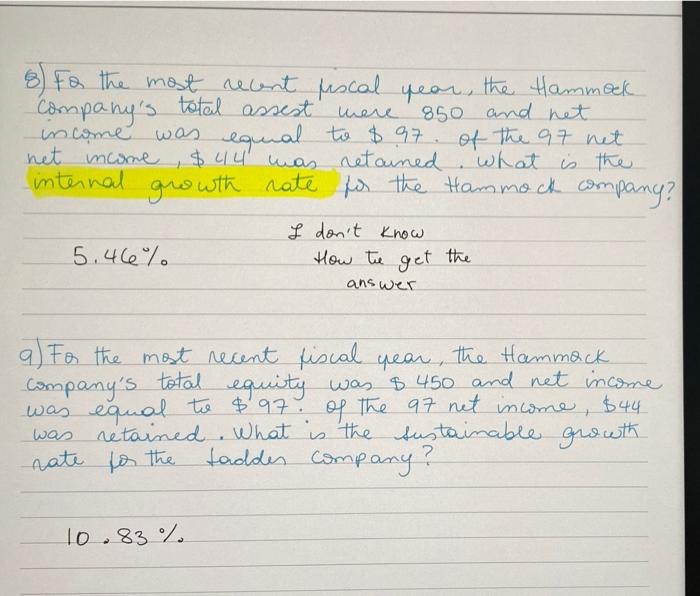 8) For the most recent fiscal year, the Hammock
Company's total assest were 850 and net
income was equal to $ 97. Of the 97 net
net income, $ 44 was retained. What is the
internal growth rate for the Hammock company?
I don't know
5.46%
How to get the
answer
9) For the most recent fiscal year, the Hammack
company's total equity was $ 450 and net income
was equal to $ 97. Of the 97 net income, $44
was retained. What is the sustainable growth
rate for the tadder company?
10.83 %